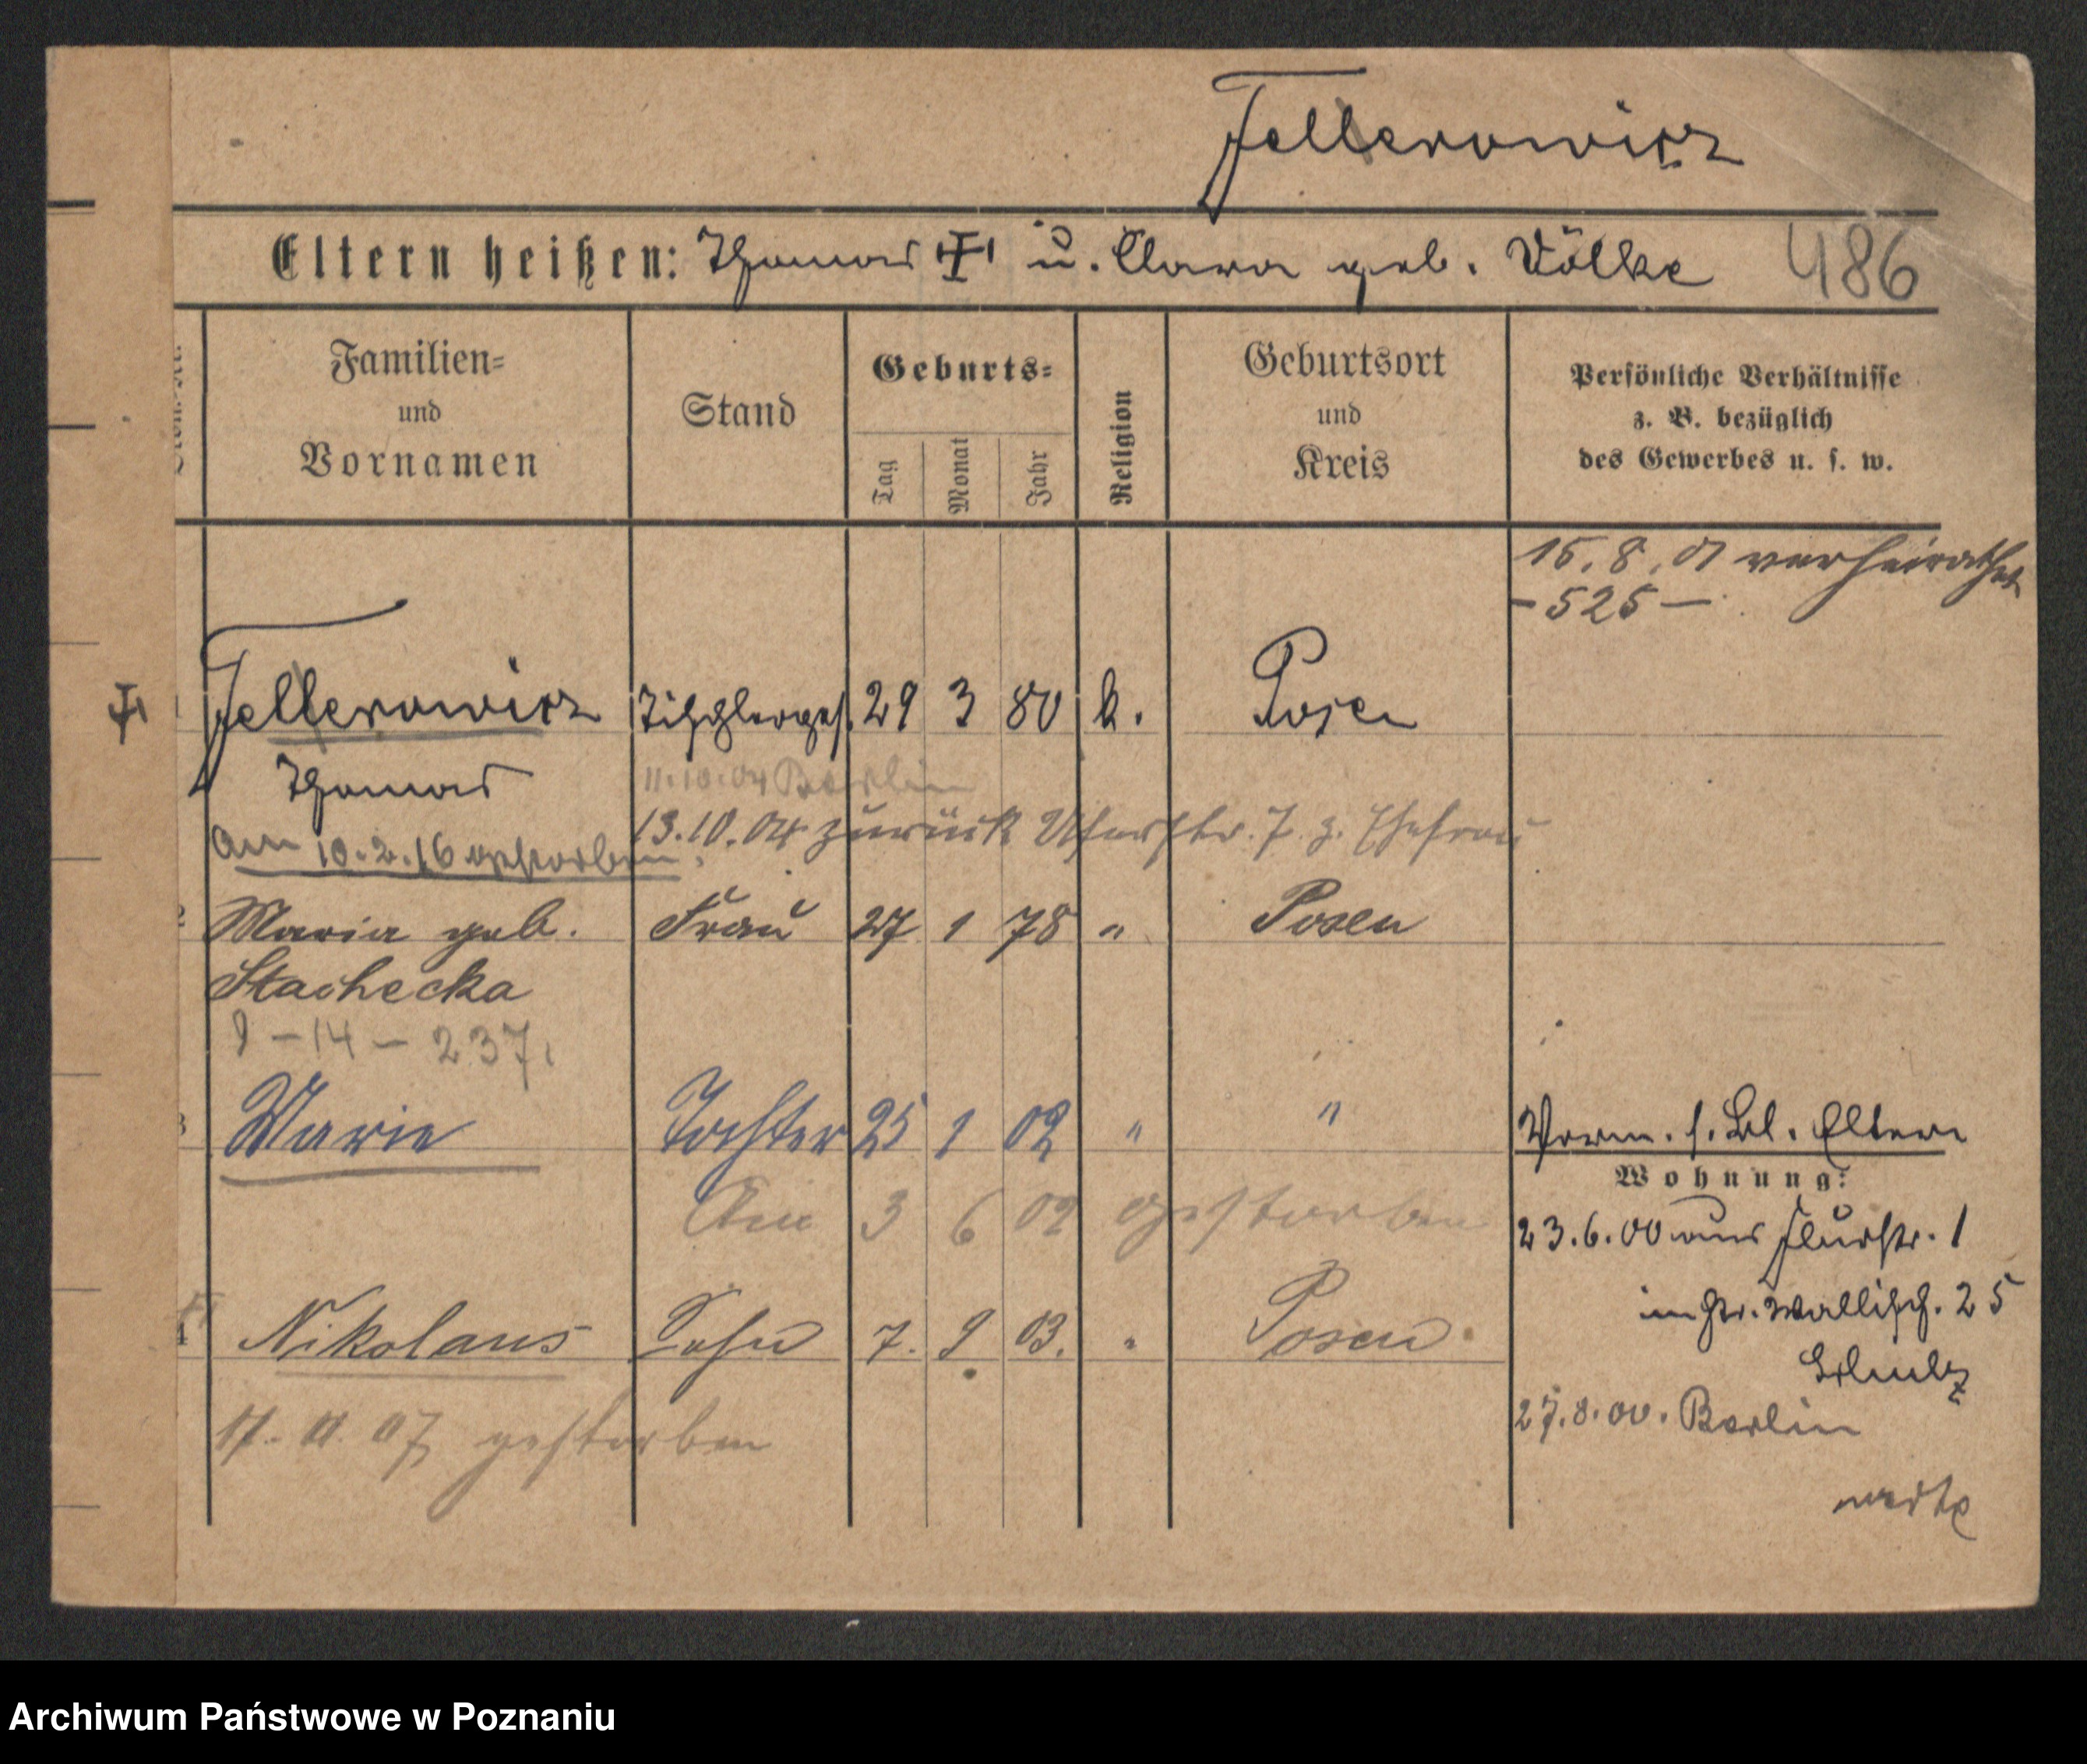 Fellerowicz
Eltern heißen: Thomas u. Clara geb. Völke 486
Familien-
und
Vornamen
Stand
Geburts-
Tag
Monat
Jahr
Religion
Geburtsort
und
Kreis
Persönliche Verhältnisse
z. B. bezüglich
des Gewerbes u. s. w.
15.8.01 verheirathet
- 525 -
1 Fellerowicz Tischlerges. 29 3 80 k. Posen
Thomas 11.10.04 Berlin
13.10.04 zurück Uferstr. 7 z. Ehefrau
Am 10.2.16 gestorben.
2 Maria geb. Frau 27 1 78 " Posen
Stachecka
9 - 14 - 237.
3 Marie Tochter 25 1 02 " " Vorm. s. Bl. Eltern
Wohnung:
Am 3 6 02 gestorben
23.6.00 aus Flurstr. 1
4 Nikolaus Sohn 7. 9 03. " Posen
in Gr. Wallisch. 25
Schulz
17. 11. 07 gestorben
27.8.00. Berlin
Archiwum Państwowe w Poznaniu